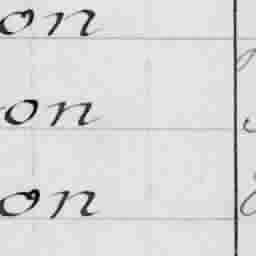 on
on
on